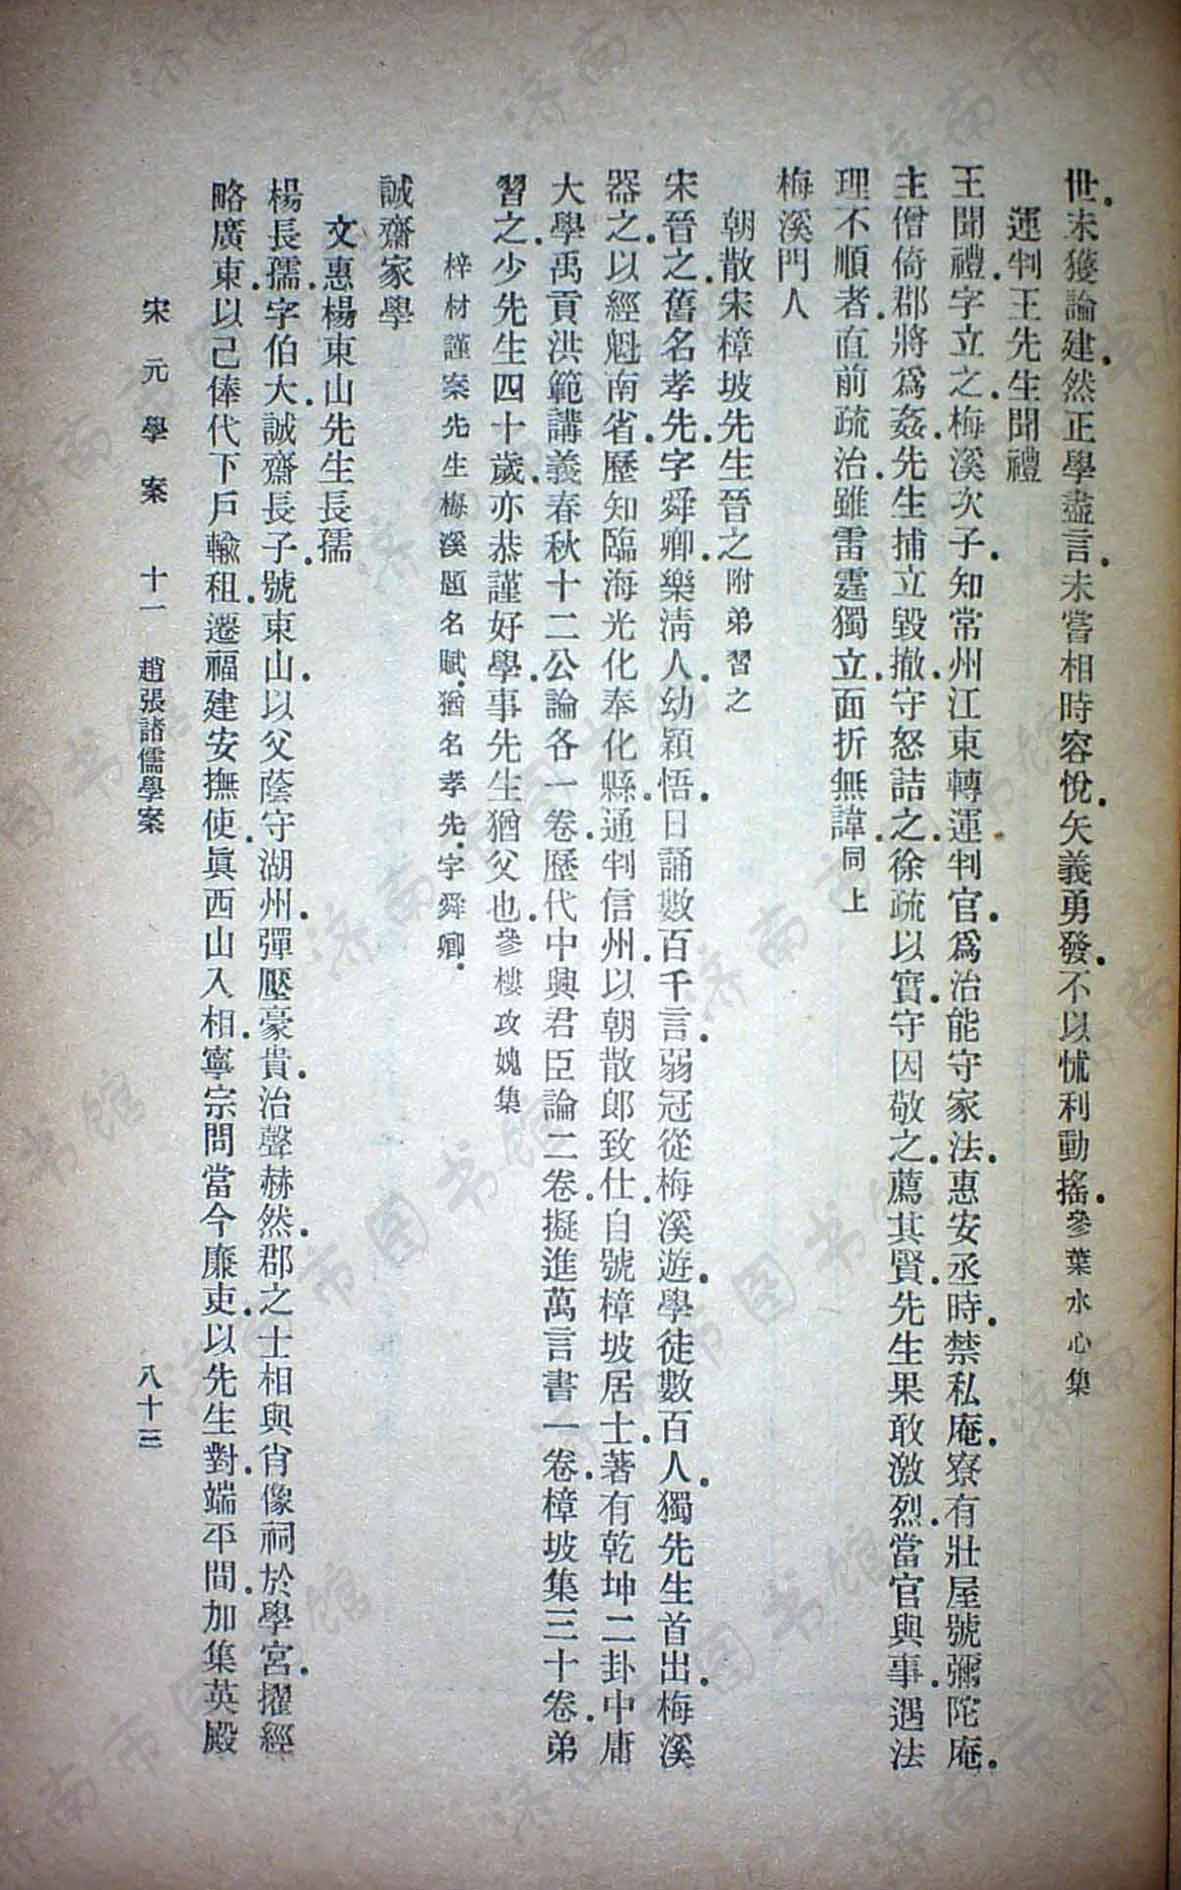 世。未獲論建。然正學盡言。未嘗相時容悅。矢義勇發。不以怵利動搖。參葉水心集
運判王先生聞禮
王聞禮。字立之。梅溪次子。知常州江東轉運判官。爲治能守家法。惠安丞時。禁私庵。寮有壯屋號彌陀庵。
主僧倚郡將爲姦。先生捕立毀撤。守怒詰之。徐疏以實。守因敬之。薦其賢。先生果敢激烈。當官與事。遇法
理不順者。直前疏治。雖雷霆獨立。面折無諱。同上
梅溪門人
朝散宋樟坡先生晉之附弟習之
宋晉之。舊名孝先。字舜卿。樂清人。幼穎悟。日誦數百千言。弱冠從梅溪遊。學徒數百人。獨先生首出。梅溪
器之。以經魁南省。歷知臨海光化奉化縣。通判信州。以朝散郎致仕。自號樟坡居士。著有乾坤二卦中庸
大學禹貢洪範講義春秋十二公論各一卷。歷代中興君臣論二卷。擬進萬言書一卷。樟坡集三十卷。弟
習之。少先生四十歲。亦恭謹好學。事先生猶父也。參樓攻媿集
梓材謹案先生梅溪題名賦。猶名孝先。字舜卿。
誠齋家學
文惠楊東山先生長孺
楊長孺。字伯大。誠齋長子。號東山。以父蔭守湖州。彈壓豪貴。治聲赫然。郡之士相與肖像祠於學宮。擢經
略廣東。以己俸代下戶輸租。遷福建安撫使。眞西山入相。寧宗問當今廉吏。以先生對。端平間。加集英殿
宋元學案 十一 趙張諸儒學案 八十三
济南市图书馆